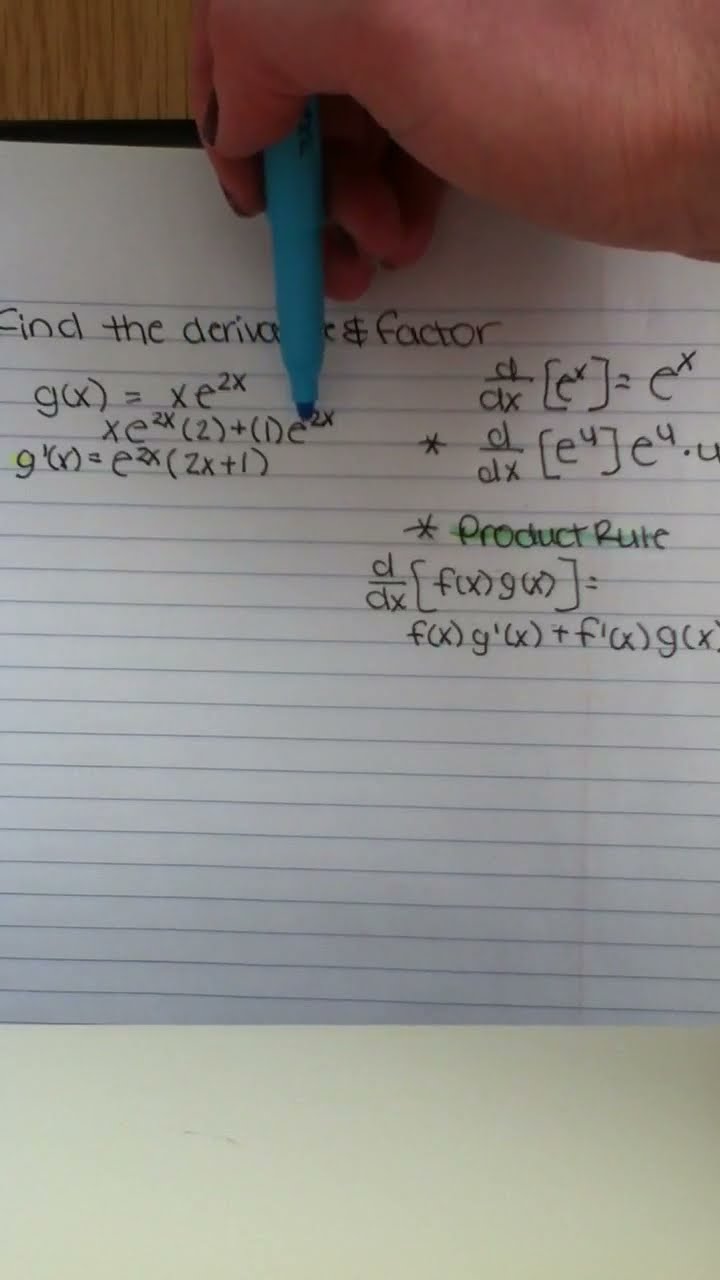 Find the & factor
g(x) = xe^2x
xe^2x (2)+(1)e^2x
g'(x)= e^2x (2x+1)
d/dx [e^x]= e^x
* d/dx [e^u] e^u · u
* Product Rule
d/dx [f(x)g(x)]=
f(x)g'(x)+f'(x)g(x)